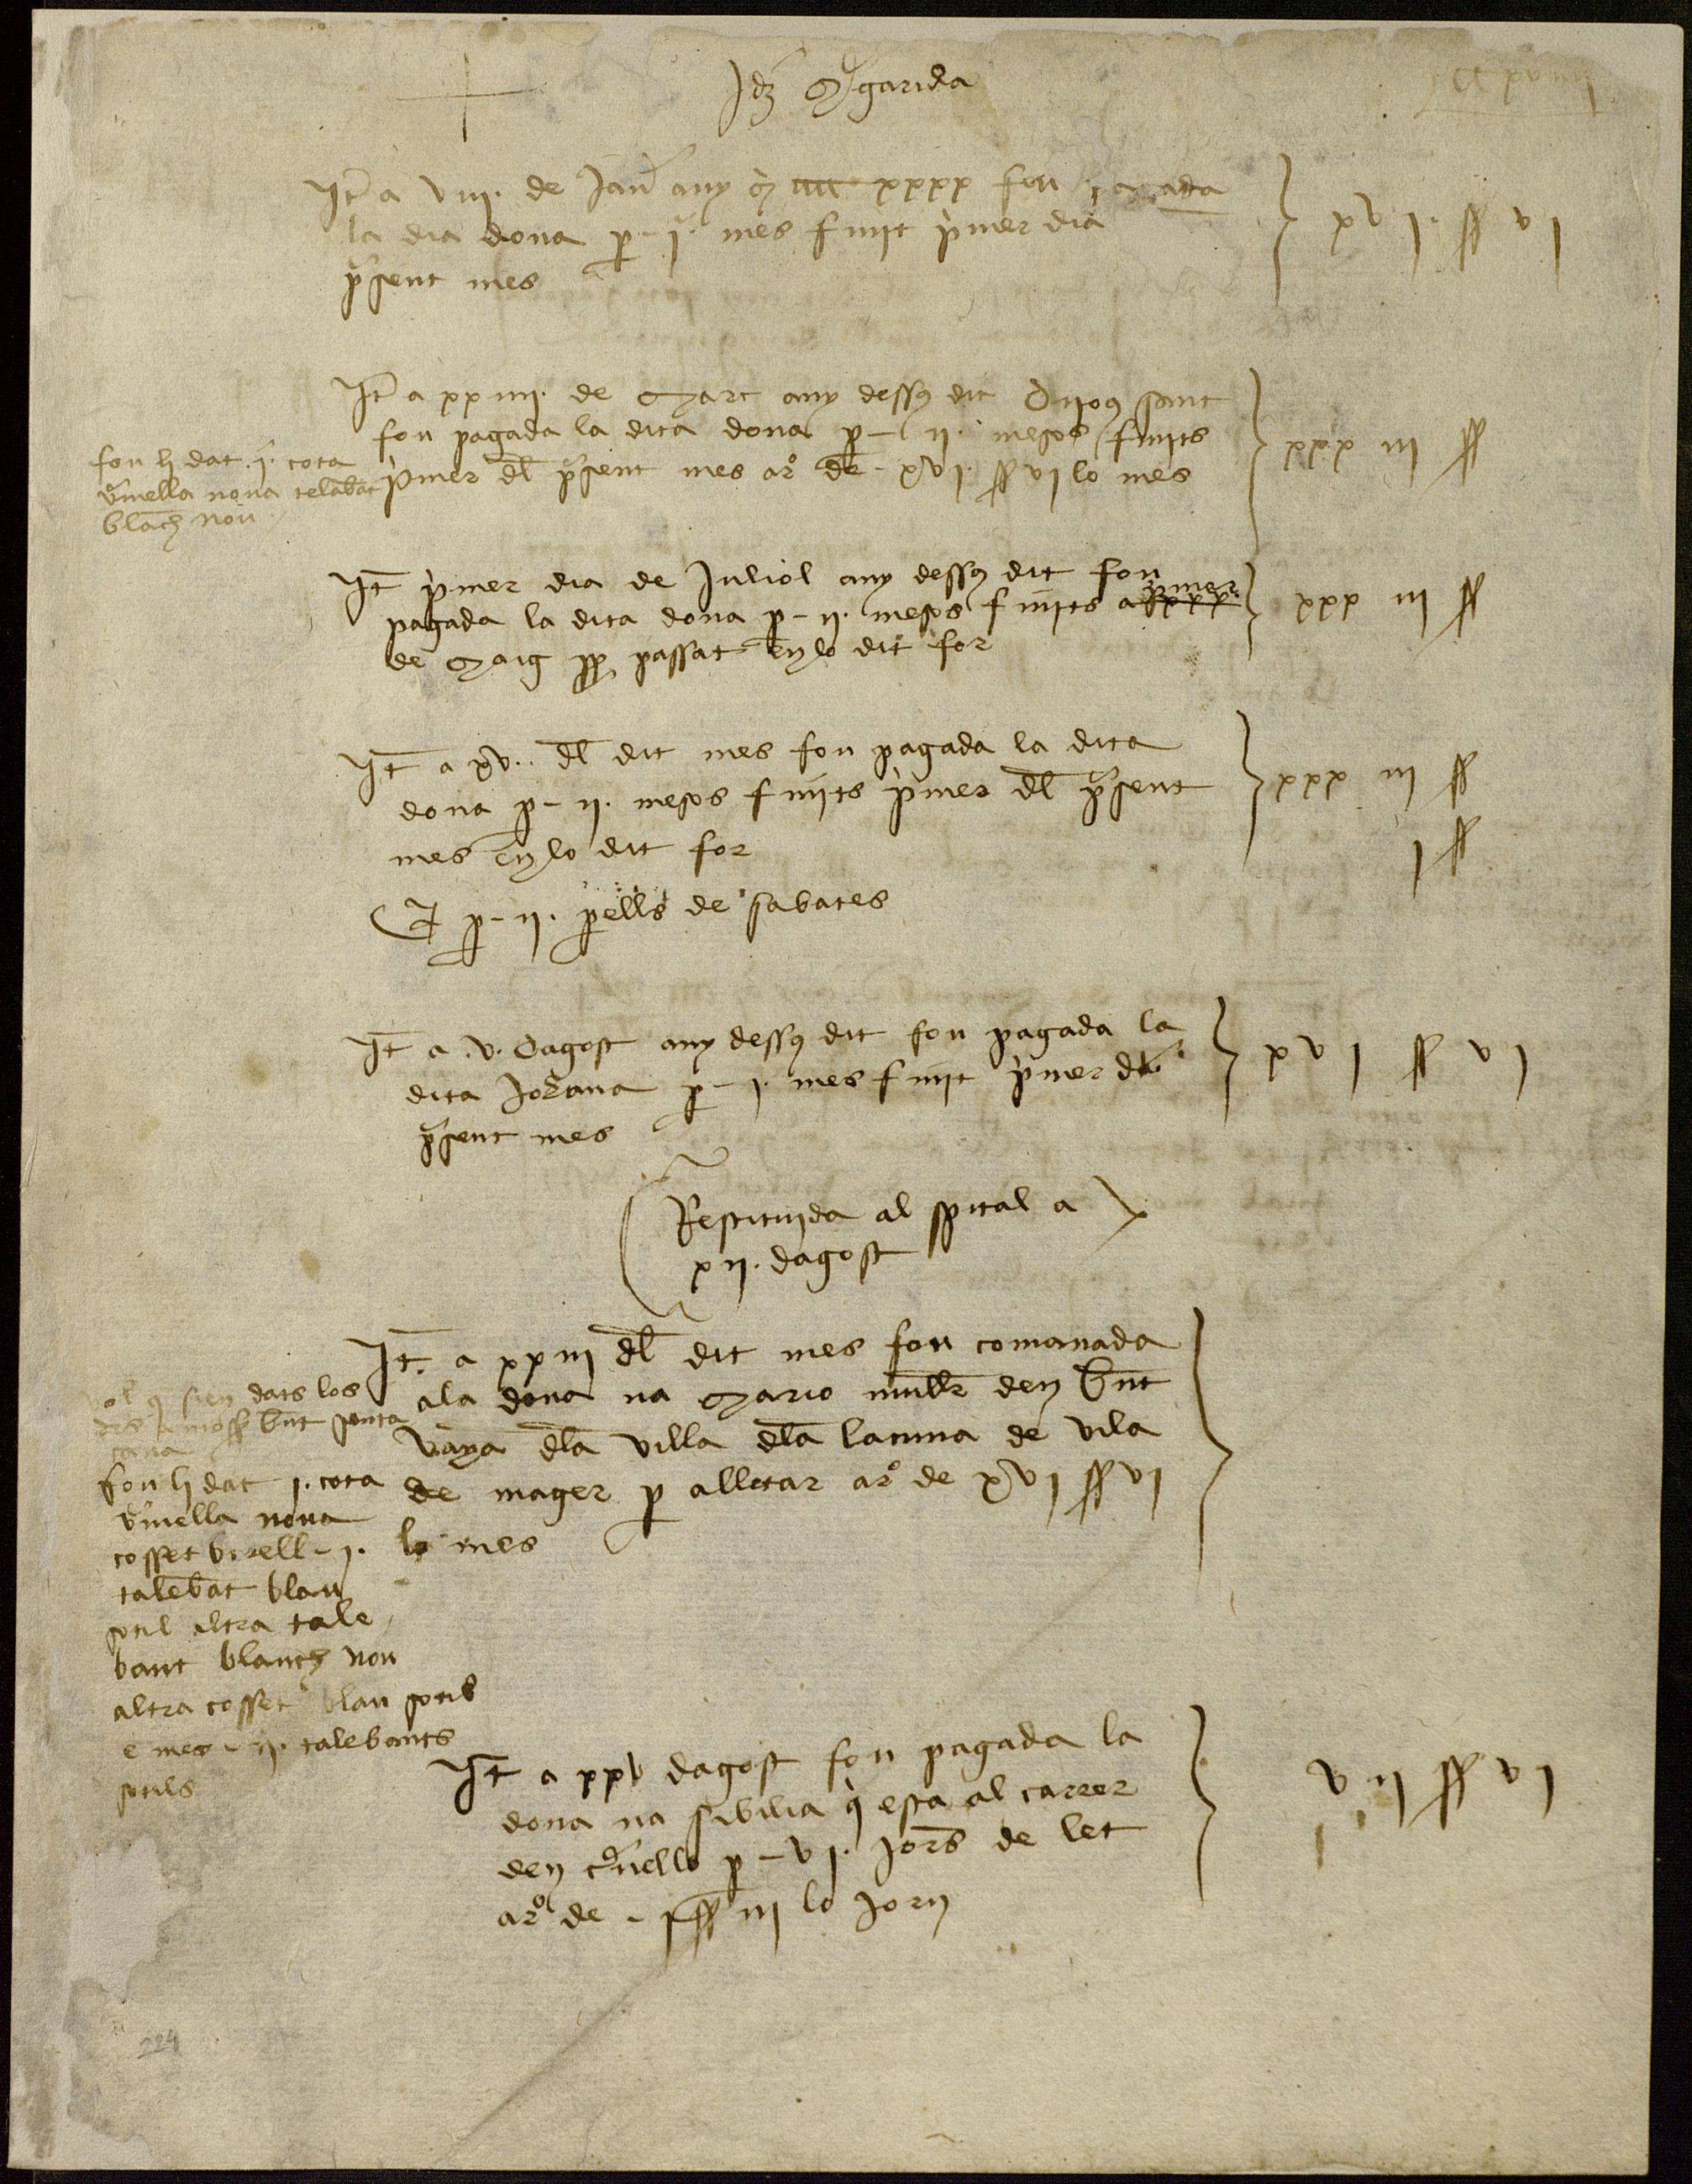 Jtz Mgarida
Jt a viii. de Jan any m cccc xxxx fon pagada
la dia dona p - i. mes finit pmer dia
psent mes
xv i. ss vi
Jt a xxiiii. de Març any dessus dit
fon pagada la dita dona p - ii. mesos finits
pmer dl psent mes aro de - xvi ss vi lo mes
xxx iii ss
fon li dat .i. cota
vmella nova telabat
blach nou
Jt pmer dia de Juliol any dessus dit fon
pagada la dita dona p - ii. mesos finits a pmer
de Maig pp passat en lo dit for
xxx iii ss
Jt a xv. dl dit mes fon pagada la dita
dona p - ii. mesos finits pmer dl psent
mes en lo dit for
xxx iii ss
E p - ii. pells de sabates
i ss
Jt a .v. dagost any dessus dit fon pagada la
dita Johana p - i. mes finit pmer dl
psent mes
xv i ss vi
Restituida al spital a
xii. dagost
Jt a xxiii dl dit mes fon comanada
ala dona na Mario mullr den bnt
vaya dla villa dla lacuna de vila
de mager p alletar aro de xvi ss vi
lo mes
vol q sien dats los
drs a moss bnt
fon li dat i. cota
vmella nova
cosset virell - i.
talebat blau
sotil altra tale
bant blanch nou
altra cosset blau sotil
e mes - ii. talebants
sotils
Jt a xxv dagost fon pagada la
dona na sibilia q esta al carrer
den p - vi. jors de let
aro de - i ss iii lo jorn